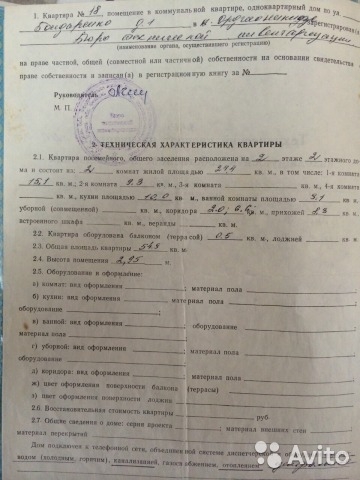 1. Квартира № 18, помещение в коммунальной квартире, одноквартирный дом по ул
Бондаренко 0.1 в г. Орджоникидзе зарегистрирован(а)
Бюро технической инвентаризации
(наименование органа, осуществившего регистрацию)
на праве частной, общей (совместной или частичной) собственности на основании свидетельства о
праве собственности и записан(а) в регистрационную книгу за №
Руководитель
М. П.
2. ТЕХНИЧЕСКАЯ ХАРАКТЕРИСТИКА КВАРТИРЫ
2.1. Квартира посемейного, общего заселения расположена на 2 этаже 2 этажного до-
ма и состоит из: 2 комнат жилой площадью кв. м., в том числе: 1-я комната
15,1 кв. м., 2-я комната 9.3 кв. м., 3-я комната кв. м., 4-я комната
кв. м., кухни площадью 10,0 кв. м., ванной комнаты площадью 3,1 кв.
уборной (совмещенной) кв. м., коридора кв. м., прихожей кв. м.
встроенного шкафа кв. м., веранды кв. м.
2.2. Квартира оборудована балконом (террасой) 0.5 кв. м., лоджией кв. м.
2.3. Общая площадь квартиры кв. м.
2.4. Высота помещения 2,95 м.
2.5. Оборудование и оформление:
а) комнат: вид оформления ; материал пола
б) кухни: вид оформления ; материал пола
оборудование ;
в) ванной: вид оформления ; оборудование
материал пола
г) уборной: вид оформления ; материал пола
оборудование ;
д) коридора: вид оформления ; материал пола
ж) цвет оформления поверхности балкона (террасы)
з) цвет оформления поверхности лоджии
2.6. Восстановительная стоимость квартиры руб
2.7. Общие сведения о доме: серия проекта ; материал внешних стен
материал перекрытий
Дом подключен к телефонной сети, объединенной системе диспетчеризации,
водом (холодным, горячим), канализацией, газоснабжением, отоплением
Avito